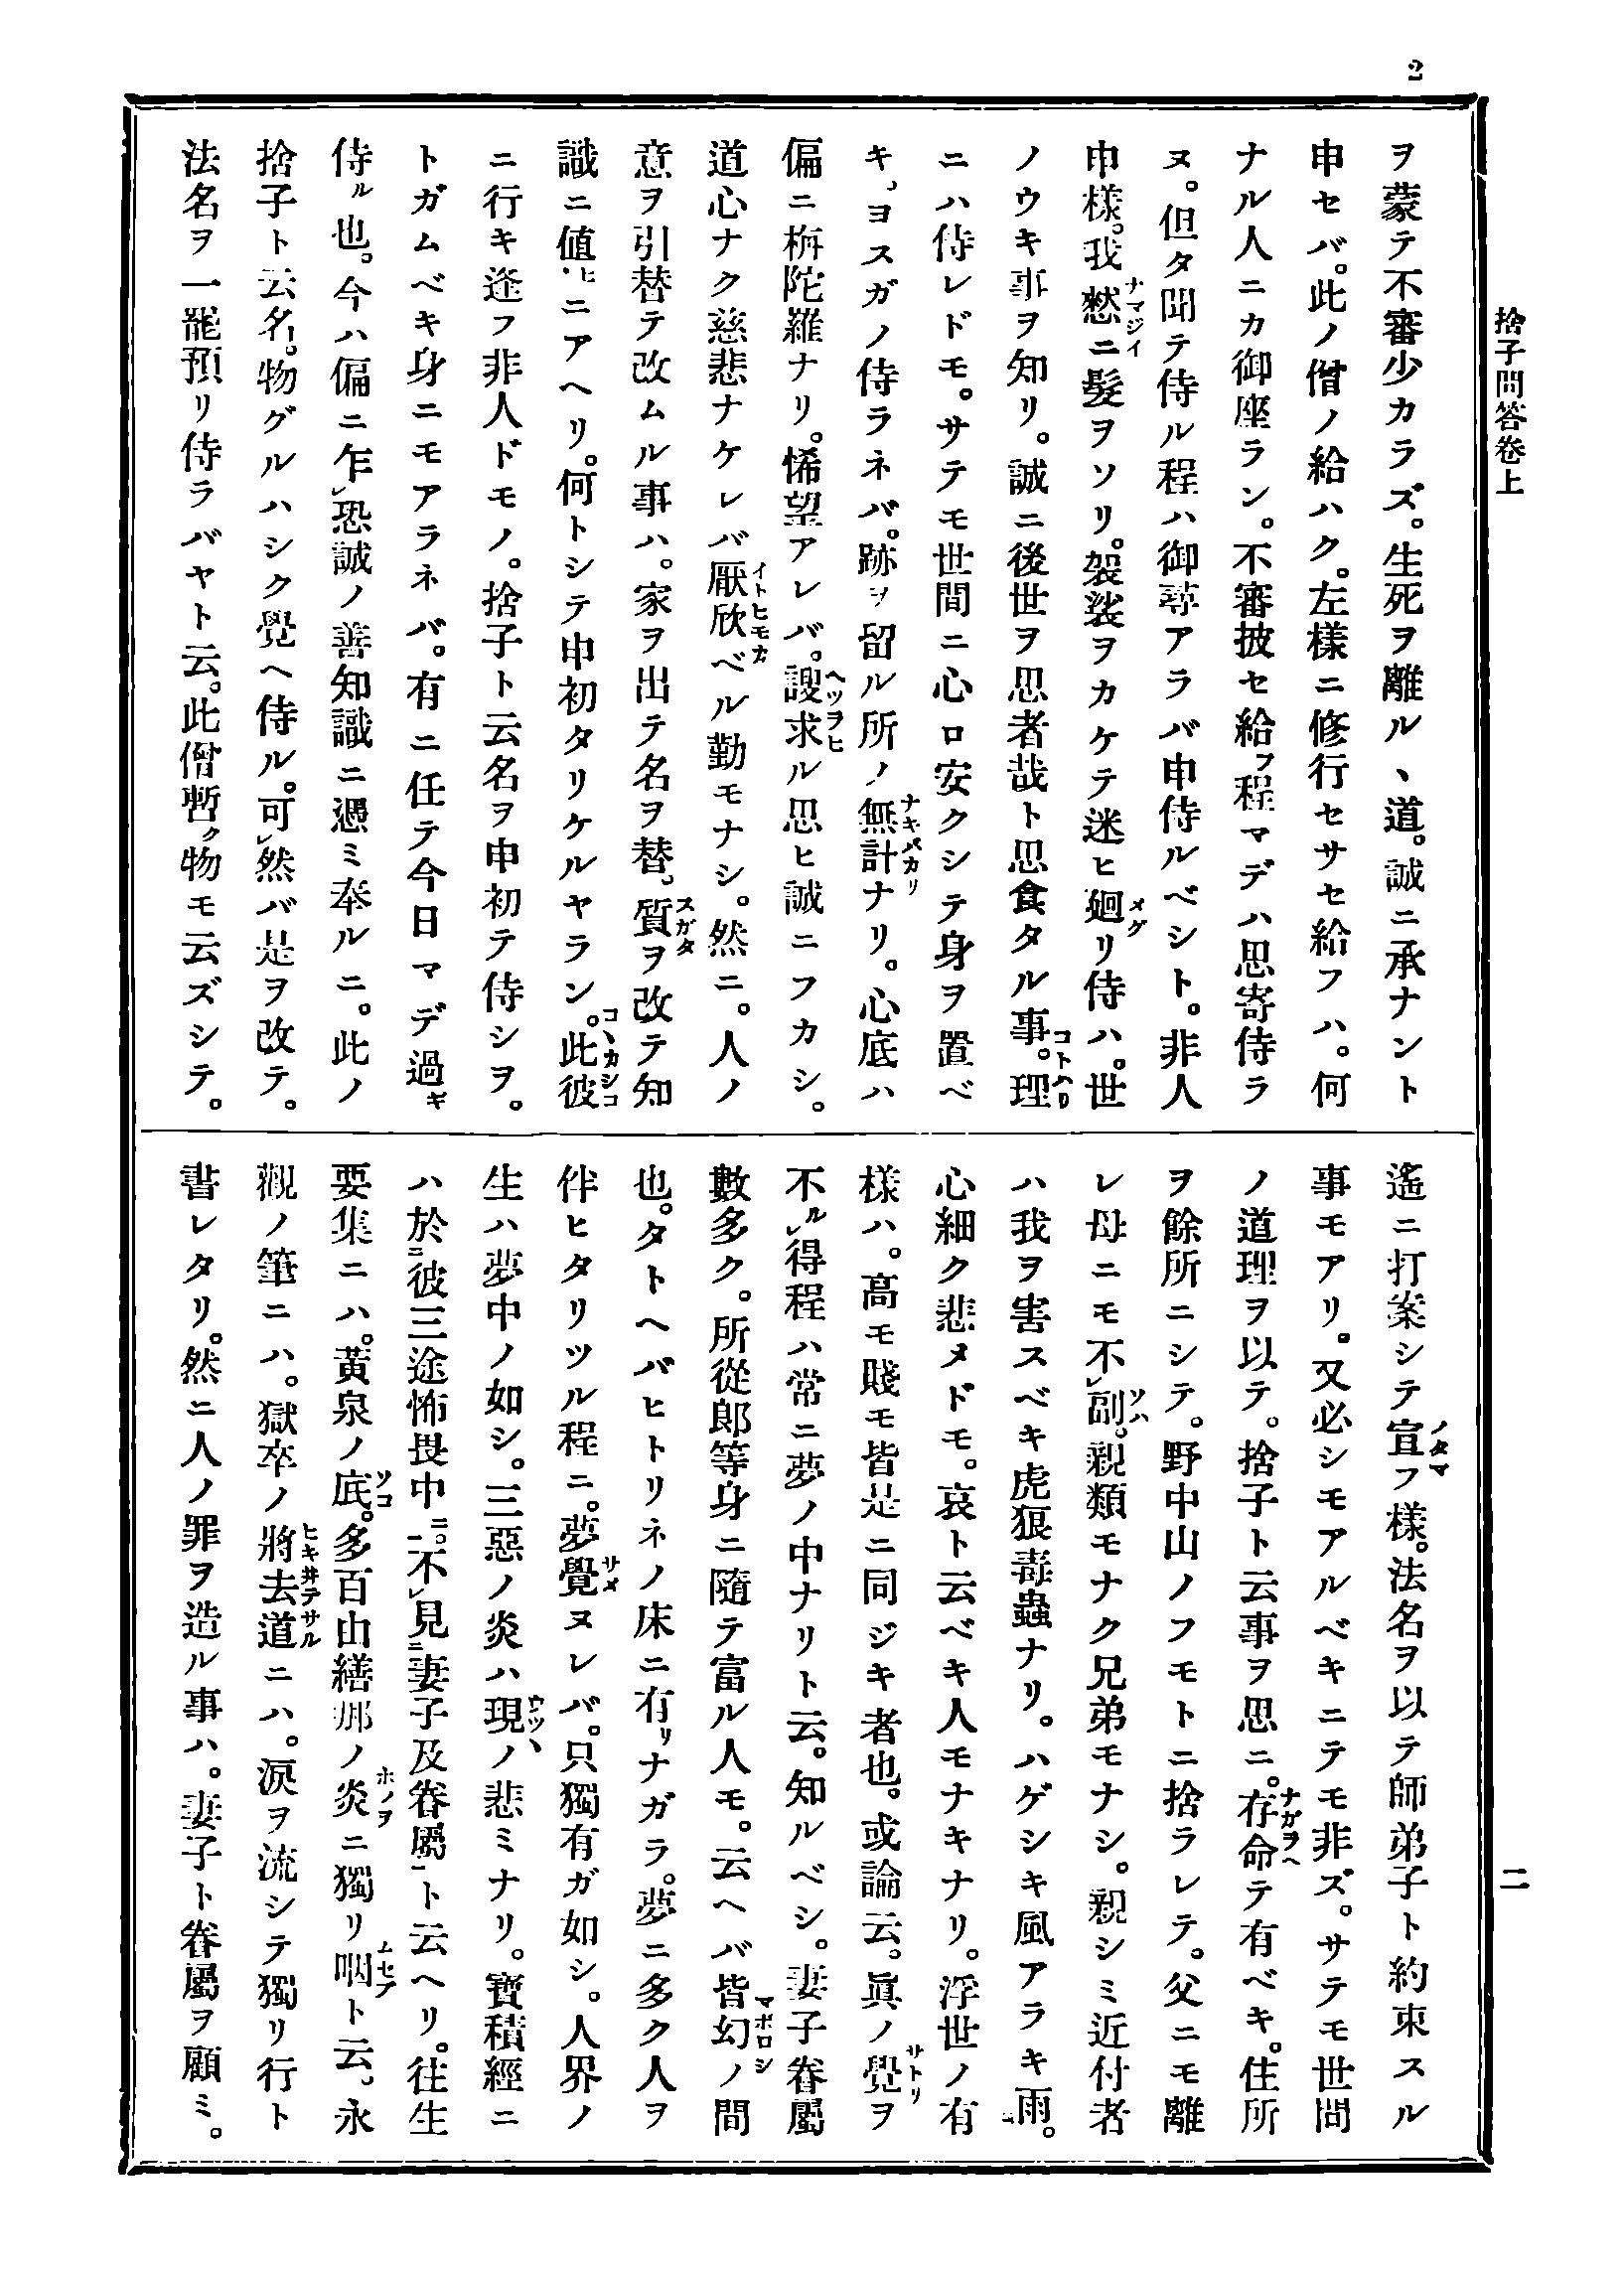 2
捨子問答卷上
二
ヲ蒙テ不審少カラズ。生死ヲ離ル、道。誠ニ承ナント
申セバ。此ノ僧ノ給ハク。左樣ニ修行セサセ給フハ。何
ナル人ニカ御座ラン。不審披セ給フ程マデハ思寄侍ラ
ヌ。但タ聞テ侍ル程ハ御尋アラバ申侍ルベシト。非人
申樣。我憖ナマジイニ髮ヲソリ。袈裟ヲカケテ迷ヒ廻メグリ侍ハ。世
ノウキ事ヲ知リ。誠ニ後世ヲ思者哉ト思食タル事。理コトハリ
ニハ侍レドモ。サテモ世間ニ心ロ安クシテ身ヲ置ベ
キ、ヨスガノ侍ラネバ。跡ヲ留ル所ノ無計ナキバカリナリ。心底ハ
偏ニ栴陀羅ナリ。悕望アレバ。謏求ヘツヲヒル思ヒ誠ニフカシ。
道心ナク慈悲ナケレバ厭欣イトヒモカベル勤モナシ。然ニ。人ノ
意ヲ引替テ改ムル事ハ。家ヲ出テ名ヲ替、質スガタヲ改テ知
識ニ値ヒニアヘリ。何トシテ申初タリケルヤラン。此彼コヽカシコ
ニ行キ逢フ非人ドモノ。捨子ト云名ヲ申初テ侍シヲ。
トガムベキ身ニモアラネバ。有ニ任テ今日マデ過ギ
侍ル也。今ハ偏ニ乍レ恐誠ノ善知識ニ憑ミ奉ルニ。此ノ
捨子ト云名。物グルハシク覺ヘ侍ル。可レ然バ是ヲ改テ。
法名ヲ一罷預リ侍ラバヤト云。此僧暫ク物モ云ズシテ。
遙ニ打案シテ宣ノタマフ樣。法名ヲ以テ師弟子ト約束スル
事モアリ。又必シモアルベキニテモ非ズ。サテモ世間
ノ道理ヲ以テ。捨子ト云事ヲ思ニ。存命ナガヲヘテ有ベキ。住所
ヲ餘所ニシテ。野中山ノフモトニ捨ラレテ。父ニモ離
レ母ニモ不レ副ソハ。親類モナク兄弟モナシ。親シミ近付者
ハ我ヲ害スベキ虎狼毒蟲ナリ。ハゲシキ風アラキ雨。
心細ク悲メドモ。哀ト云ベキ人モナキナリ。浮世ノ有
樣ハ。高モ賤モ皆是ニ同ジキ者也。或論云。眞ノ覺サトリヲ
不ルレ得程ハ常ニ夢ノ中ナリト云。知ルベシ。妻子眷屬
數多ク。所從郎等身ニ隨テ富ル人モ。云ヘバ皆幻マボロシノ間
也。タトヘバヒトリネノ床ニ有リナガラ。夢ニ多ク人ヲ
伴ヒタリツル程ニ。夢覺サメヌレバ。只獨有ガ如シ。人界ノ
生ハ夢中ノ如シ。三惡ノ炎ハ現ウツヽノ悲ミナリ。寶積經ニ
ハ於ニ彼三途怖畏中ニ一。不レ見ニ妻子及眷屬一ト云ヘリ。往生
要集ニハ。黃泉ノ底ソコ。多百由繕那ノ炎ホノヲニ獨リ咽ムセブト云。永
觀ノ筆ニハ。獄卒ノ將去ヒキ井テサル道ニハ。淚ヲ流シテ獨リ行ト
書レタリ。然ニ人ノ罪ヲ造ル事ハ。妻子ト眷屬ヲ顧ミ。